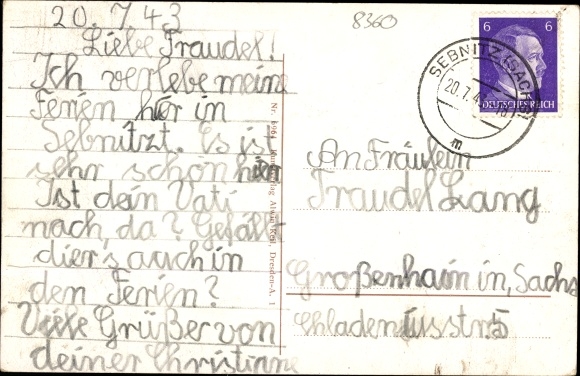 20. 7. 43
8360
Liebe Traudel!
Ich verlebe meine
Ferien hier in
Sebnitzt. Es ist
sehr schön hier
Ist dein Vati
nach, da? Gefällt
dier's auch in
den Ferien?
Viele Grüßer von
deiner Christinne
Nr. Kunstverlag Alwin Keil, Dresden-A. 1
6 6
DEUTSCHES REICH
SEBNITZ (SACHS)
20.7.4
m
An Fräulein
Traudel Lang
Großenhain in, Sachs
Chladeniusstr.5